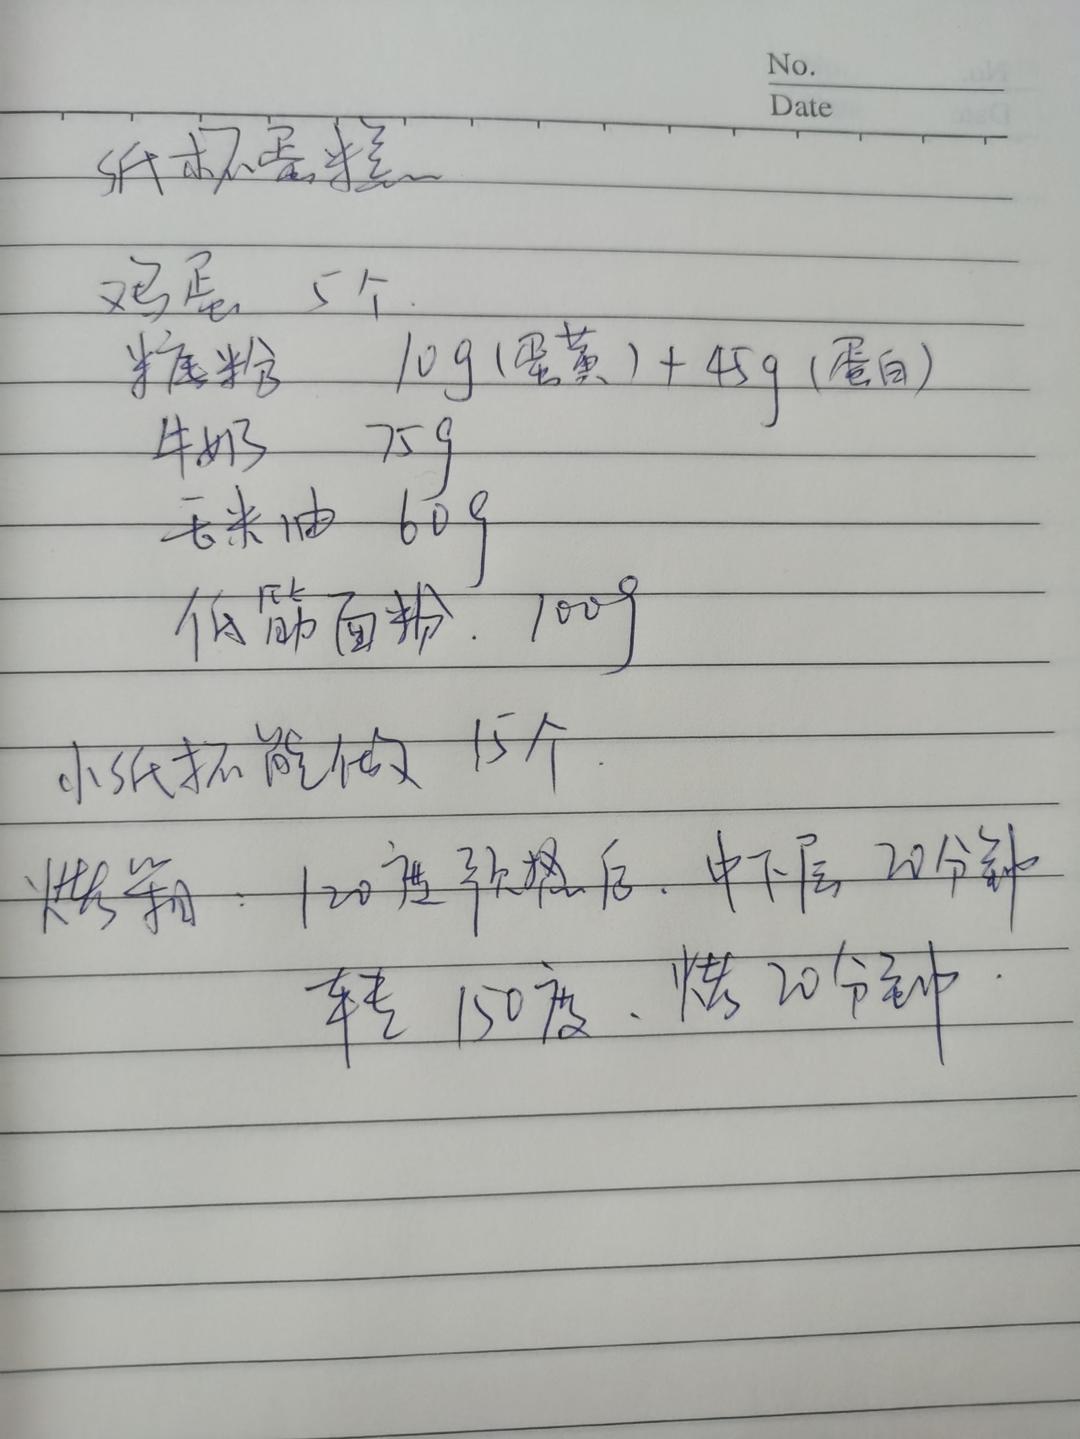 No.
Date
纸杯蛋糕
鸡蛋 5个.
糖粉 10g(蛋黄)+45g(蛋白)
牛奶 75g
玉米油 60g
低筋面粉. 100g
小纸杯能做 15个.
烤箱: 120度预热后. 中下层 20分钟
转 150度、烤20分钟.